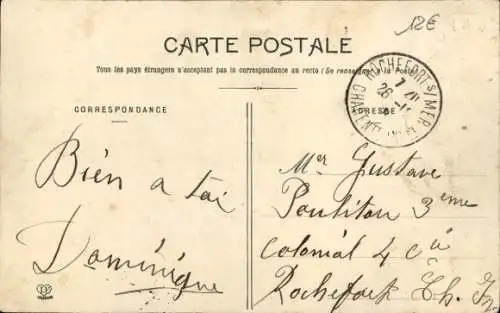 12€
CARTE POSTALE
Tous les pays étrangers n'acceptant pas la correspondance au recto (Se renseigner à la Poste)
CORRESPONDANCE
ADRESSE
ROCHEFORT S/MER
26
Bien a toi
Dominique
Mer Gustave
Pouliton 3eme
colonial 4 cie
Rochefort Ch. Inf